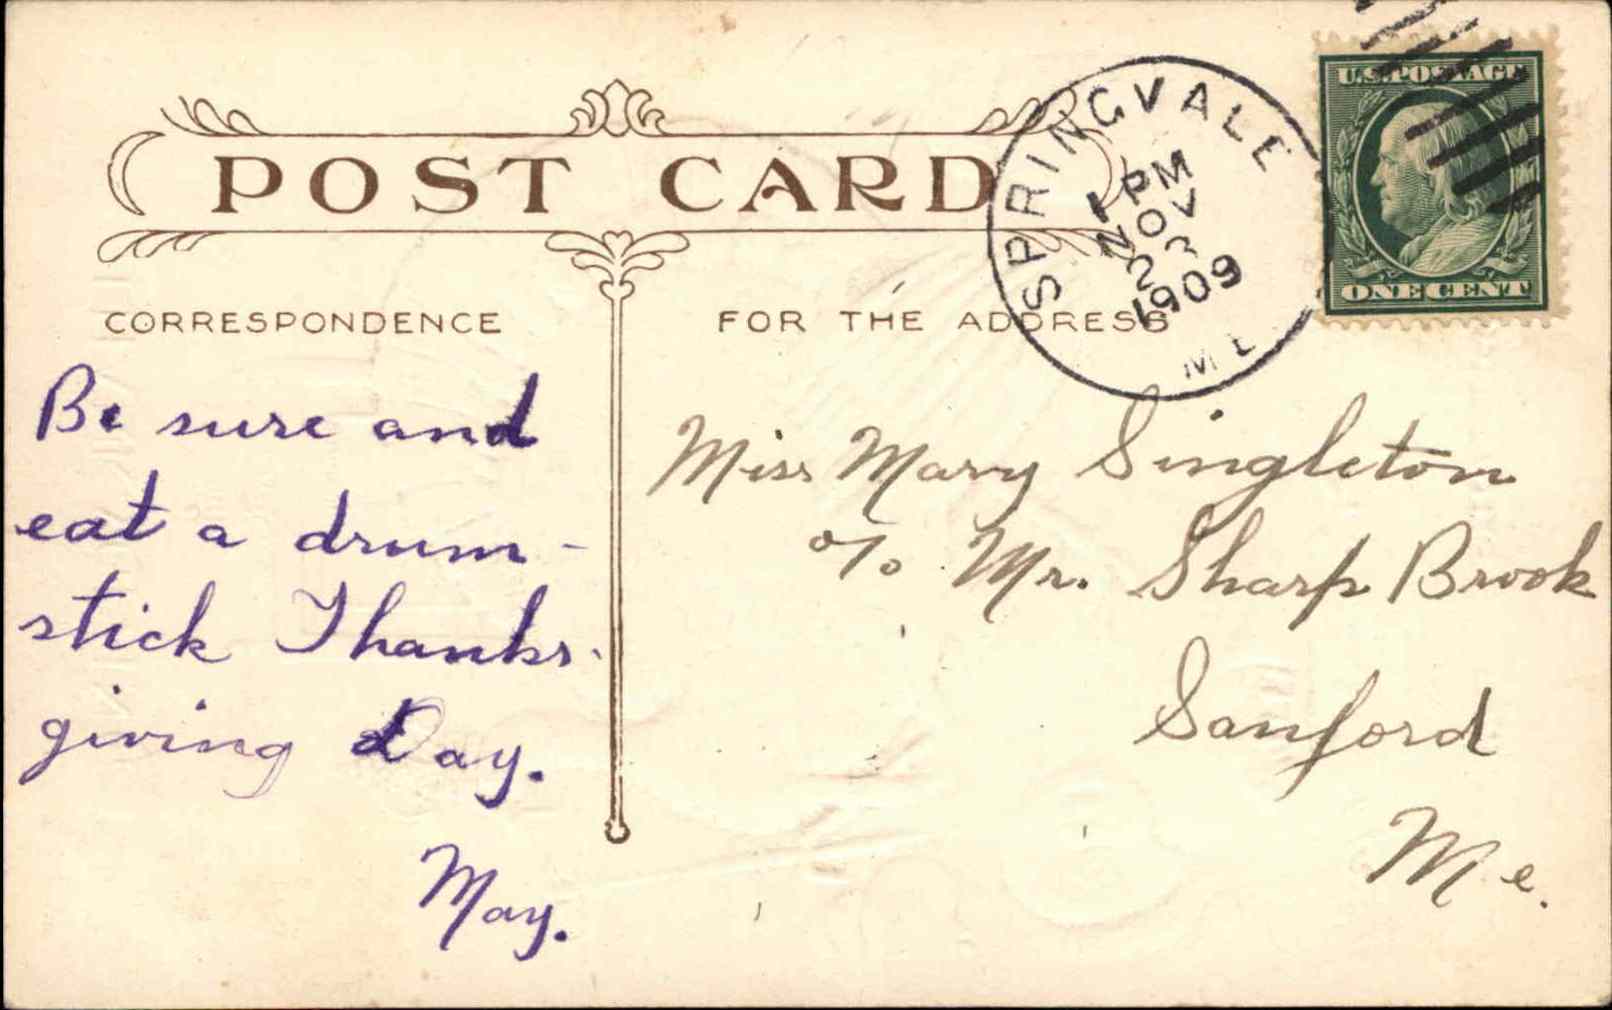 POST CARD
SPRINGVALE
1 PM
NOV
1909
ME
U.S. POSTAGE
ONE CENT
CORRESPONDENCE
FOR THE ADDRESS
Be sure and
eat a drum-
stick Thanks-
giving Day.
May.
Miss Mary Singleton
c/o Mr. Sharp Brook
Sanford
Me.